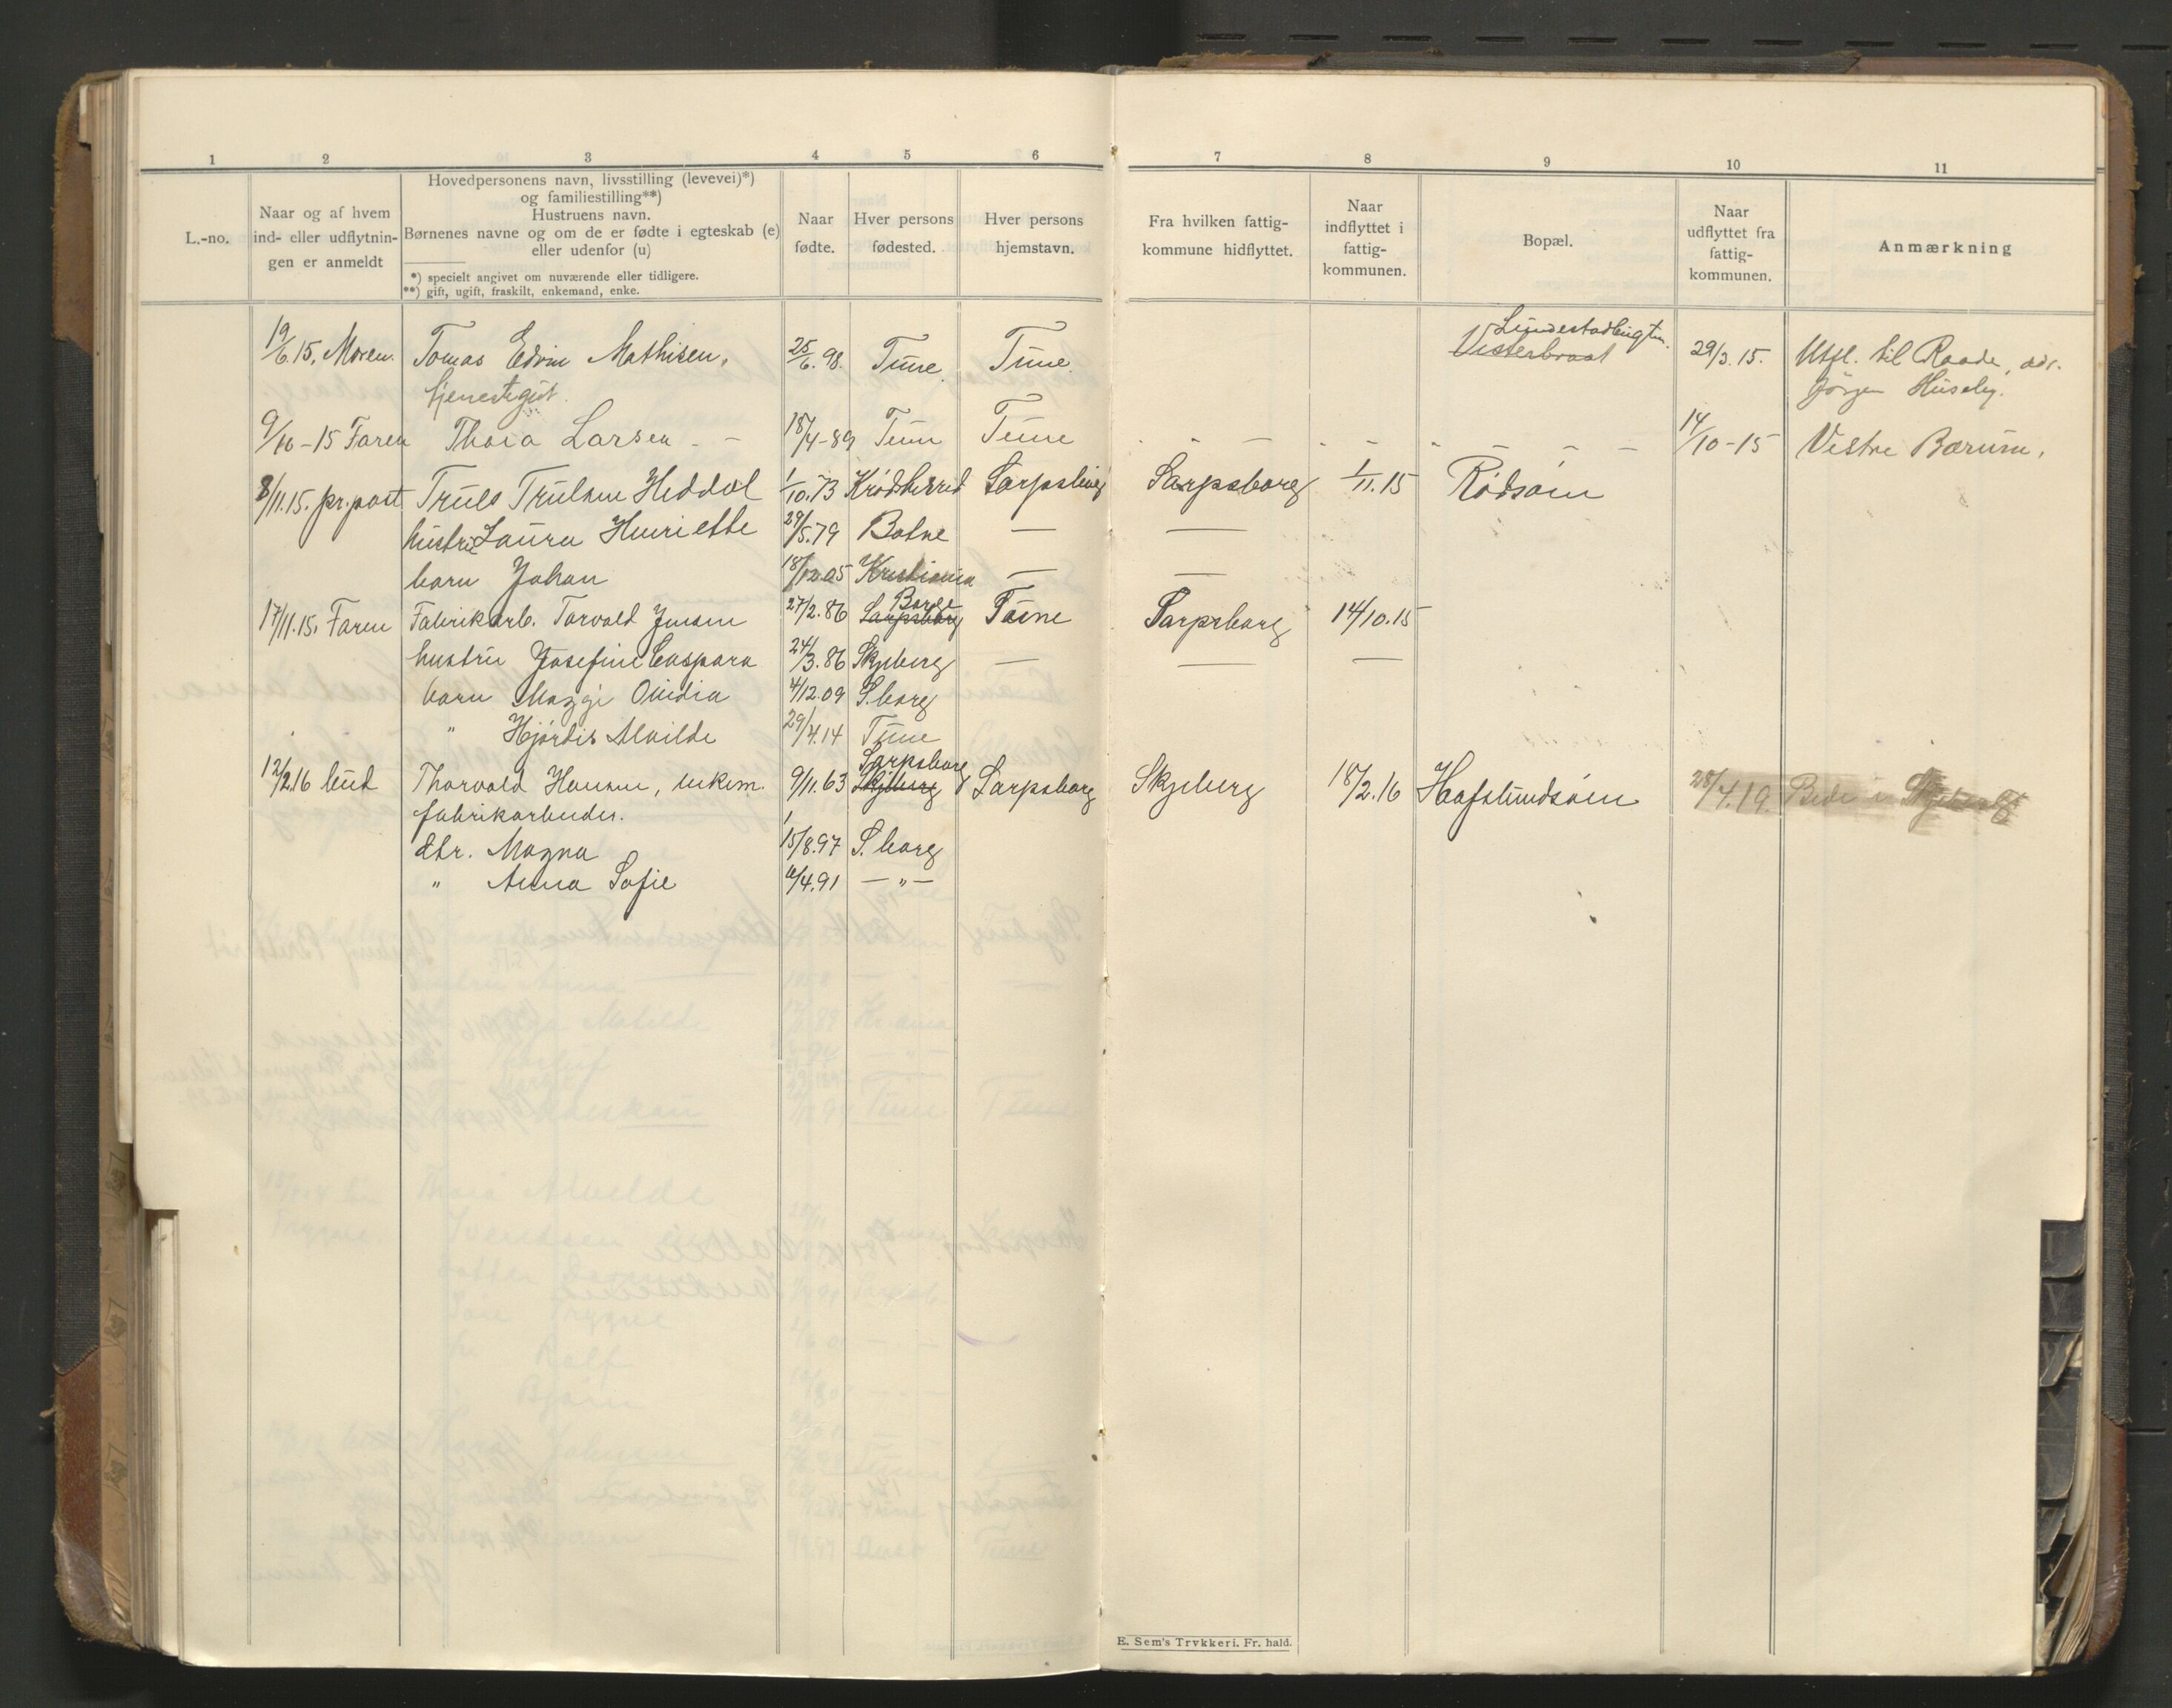 1 2 3 4 5 6 7 8 9 10 11
L.-no.
Naar og af hvem
ind- eller udflytnin-
gen er anmeldt
Hovedpersonens navn, livsstilling (levevei)*)
og familiestilling**)
Hustruens navn.
Børnenes navne og om de er fødte i egteskab (e)
eller udenfor (u)
*) specielt angivet om nuværende eller tidligere.
**) gift, ugift, fraskilt, enkemand, enke.
Naar
fødte.
Hver persons
fødested.
Hver persons
hjemstavn.
Fra hvilken fattig-
kommune hidflyttet.
Naar
indflyttet i
fattig-
kommunen.
Bopæl.
Naar
udflyttet fra
fattig-
kommunen.
Anmærkning
19/6.15. Moren. Tomas Edvin Mathisen, 25/6.98. Tune. Tune. Vesterbraat 29/3.15. Utfl. til Raade, adr.
tjenestegut. Jörgen Huseby.
9/10-15 Faren Thora Larsen - - 18/4-89 Tune Tune - - - - - - - - 14/10-15 Vestre Bærum.
8/11.15. pr. post Truls Trulsen Heddal 1/10.73 Krödsherred Sarpsborg Sarpsborg 1/11.15 Rödsöien
hustru Laura Henriette 29/5.79 Botne — —
barn Johan 18/12.05 Kristiania — —
Borge
17/11.15. Faren Fabrikarb. Torvald Jensen 27/2.86 Sarpsborg Tune Sarpsborg 14/10.15
hustru Josefine Caspara 24/3.86 Skjeberg — — —
barn Maggi Ovidia 4/12.09 S.borg
" Hjördis Alvilde 29/4.14 Tune
Sarpsborg
12/2.16 bud Thorvald Hansen, enkem. 9/11.63 Skjeberg Sarpsborg Skjeberg 18/2.16 Hafslundsöien 28/4.19. Skjeberg
fabrikarbeider.
dtr. Magna 15/8.97 S.borg
" Anna Sofie 4.91 — " —
E. Sem's Trykkeri. Fr. hald.